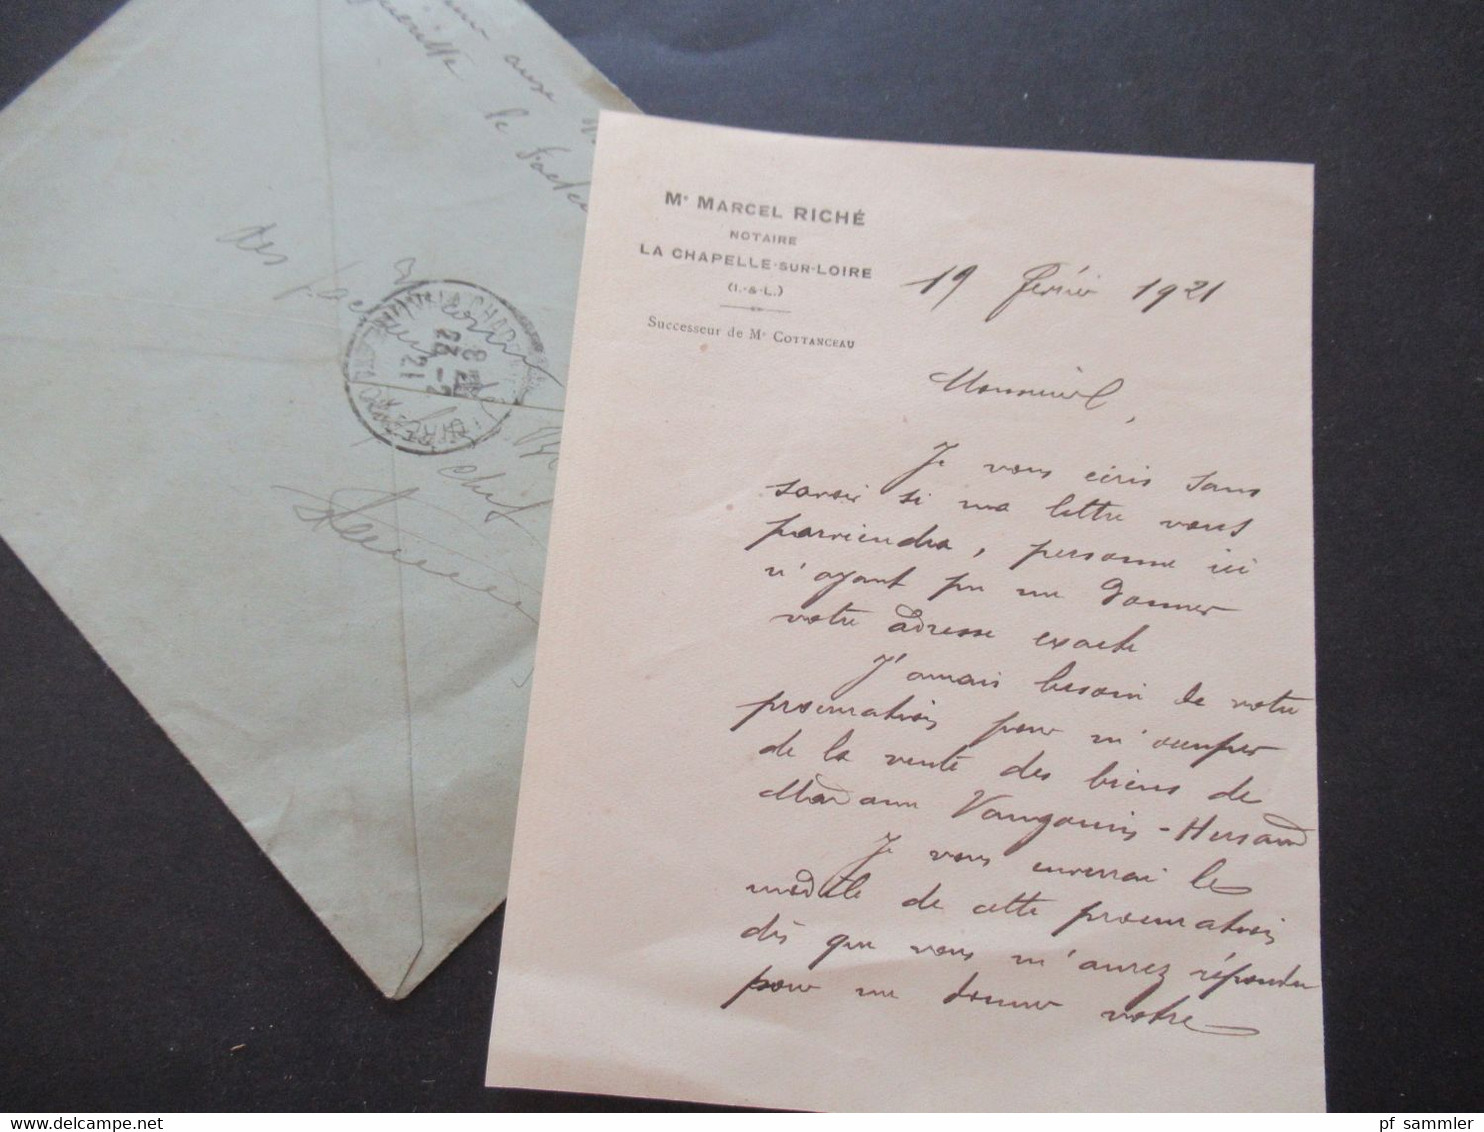 le facteur
des facteurs
LA CHAPELLE
8
22 - 2
21
Mᵉ MARCEL RICHÉ
NOTAIRE
LA CHAPELLE-SUR-LOIRE
(I.-&-L.)
Successeur de Mᵉ COTTANCEAU
19 février 1921
Monsieur,
Je vous écris sans
savoir si ma lettre vous
parviendra, personne ici
n'ayant pu me donner
votre adresse exacte
J'aurais besoin de votre
procuration pour m'occuper
de la vente des biens de
Madame Vaugouin-Hersand
Je vous enverrai le
modèle de cette procuration
dès que vous m'aurez répondu
pour me donner votre
www.delcampe.net
pf sammler